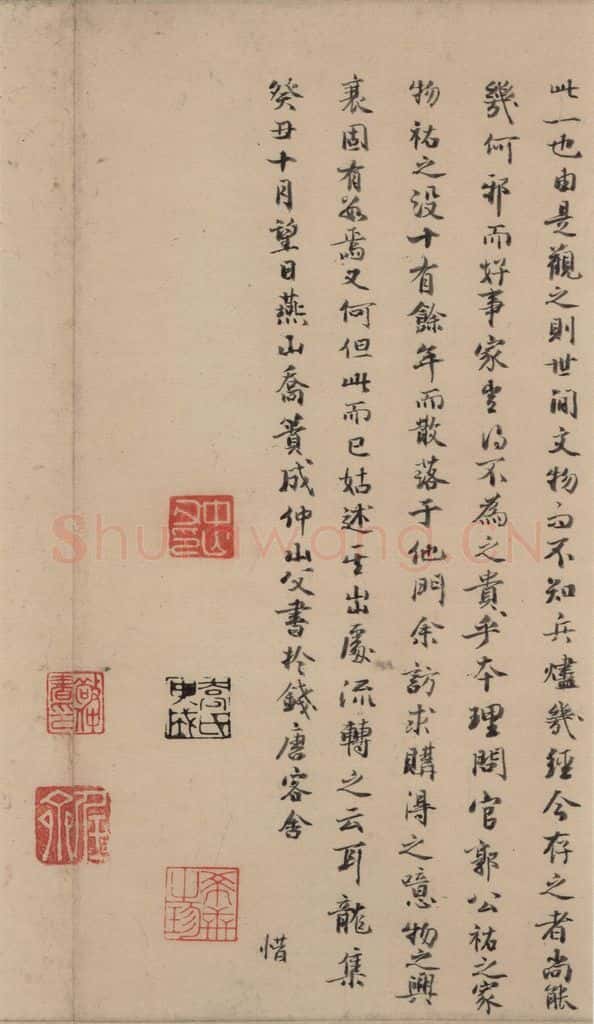 此一也由是觀之則世間文物不知兵燼幾經今存之者尚能
幾何邪而好事家豈得不為之貴乎本理問官郭公祐之家
物祐之没十有餘年而散落于他門余訪求購得之噫物之興
衰固有數焉又何但此而已姑述其出處流轉之云耳龍集
癸丑十月望日燕山喬簣成仲山父書於錢唐客舍
惜